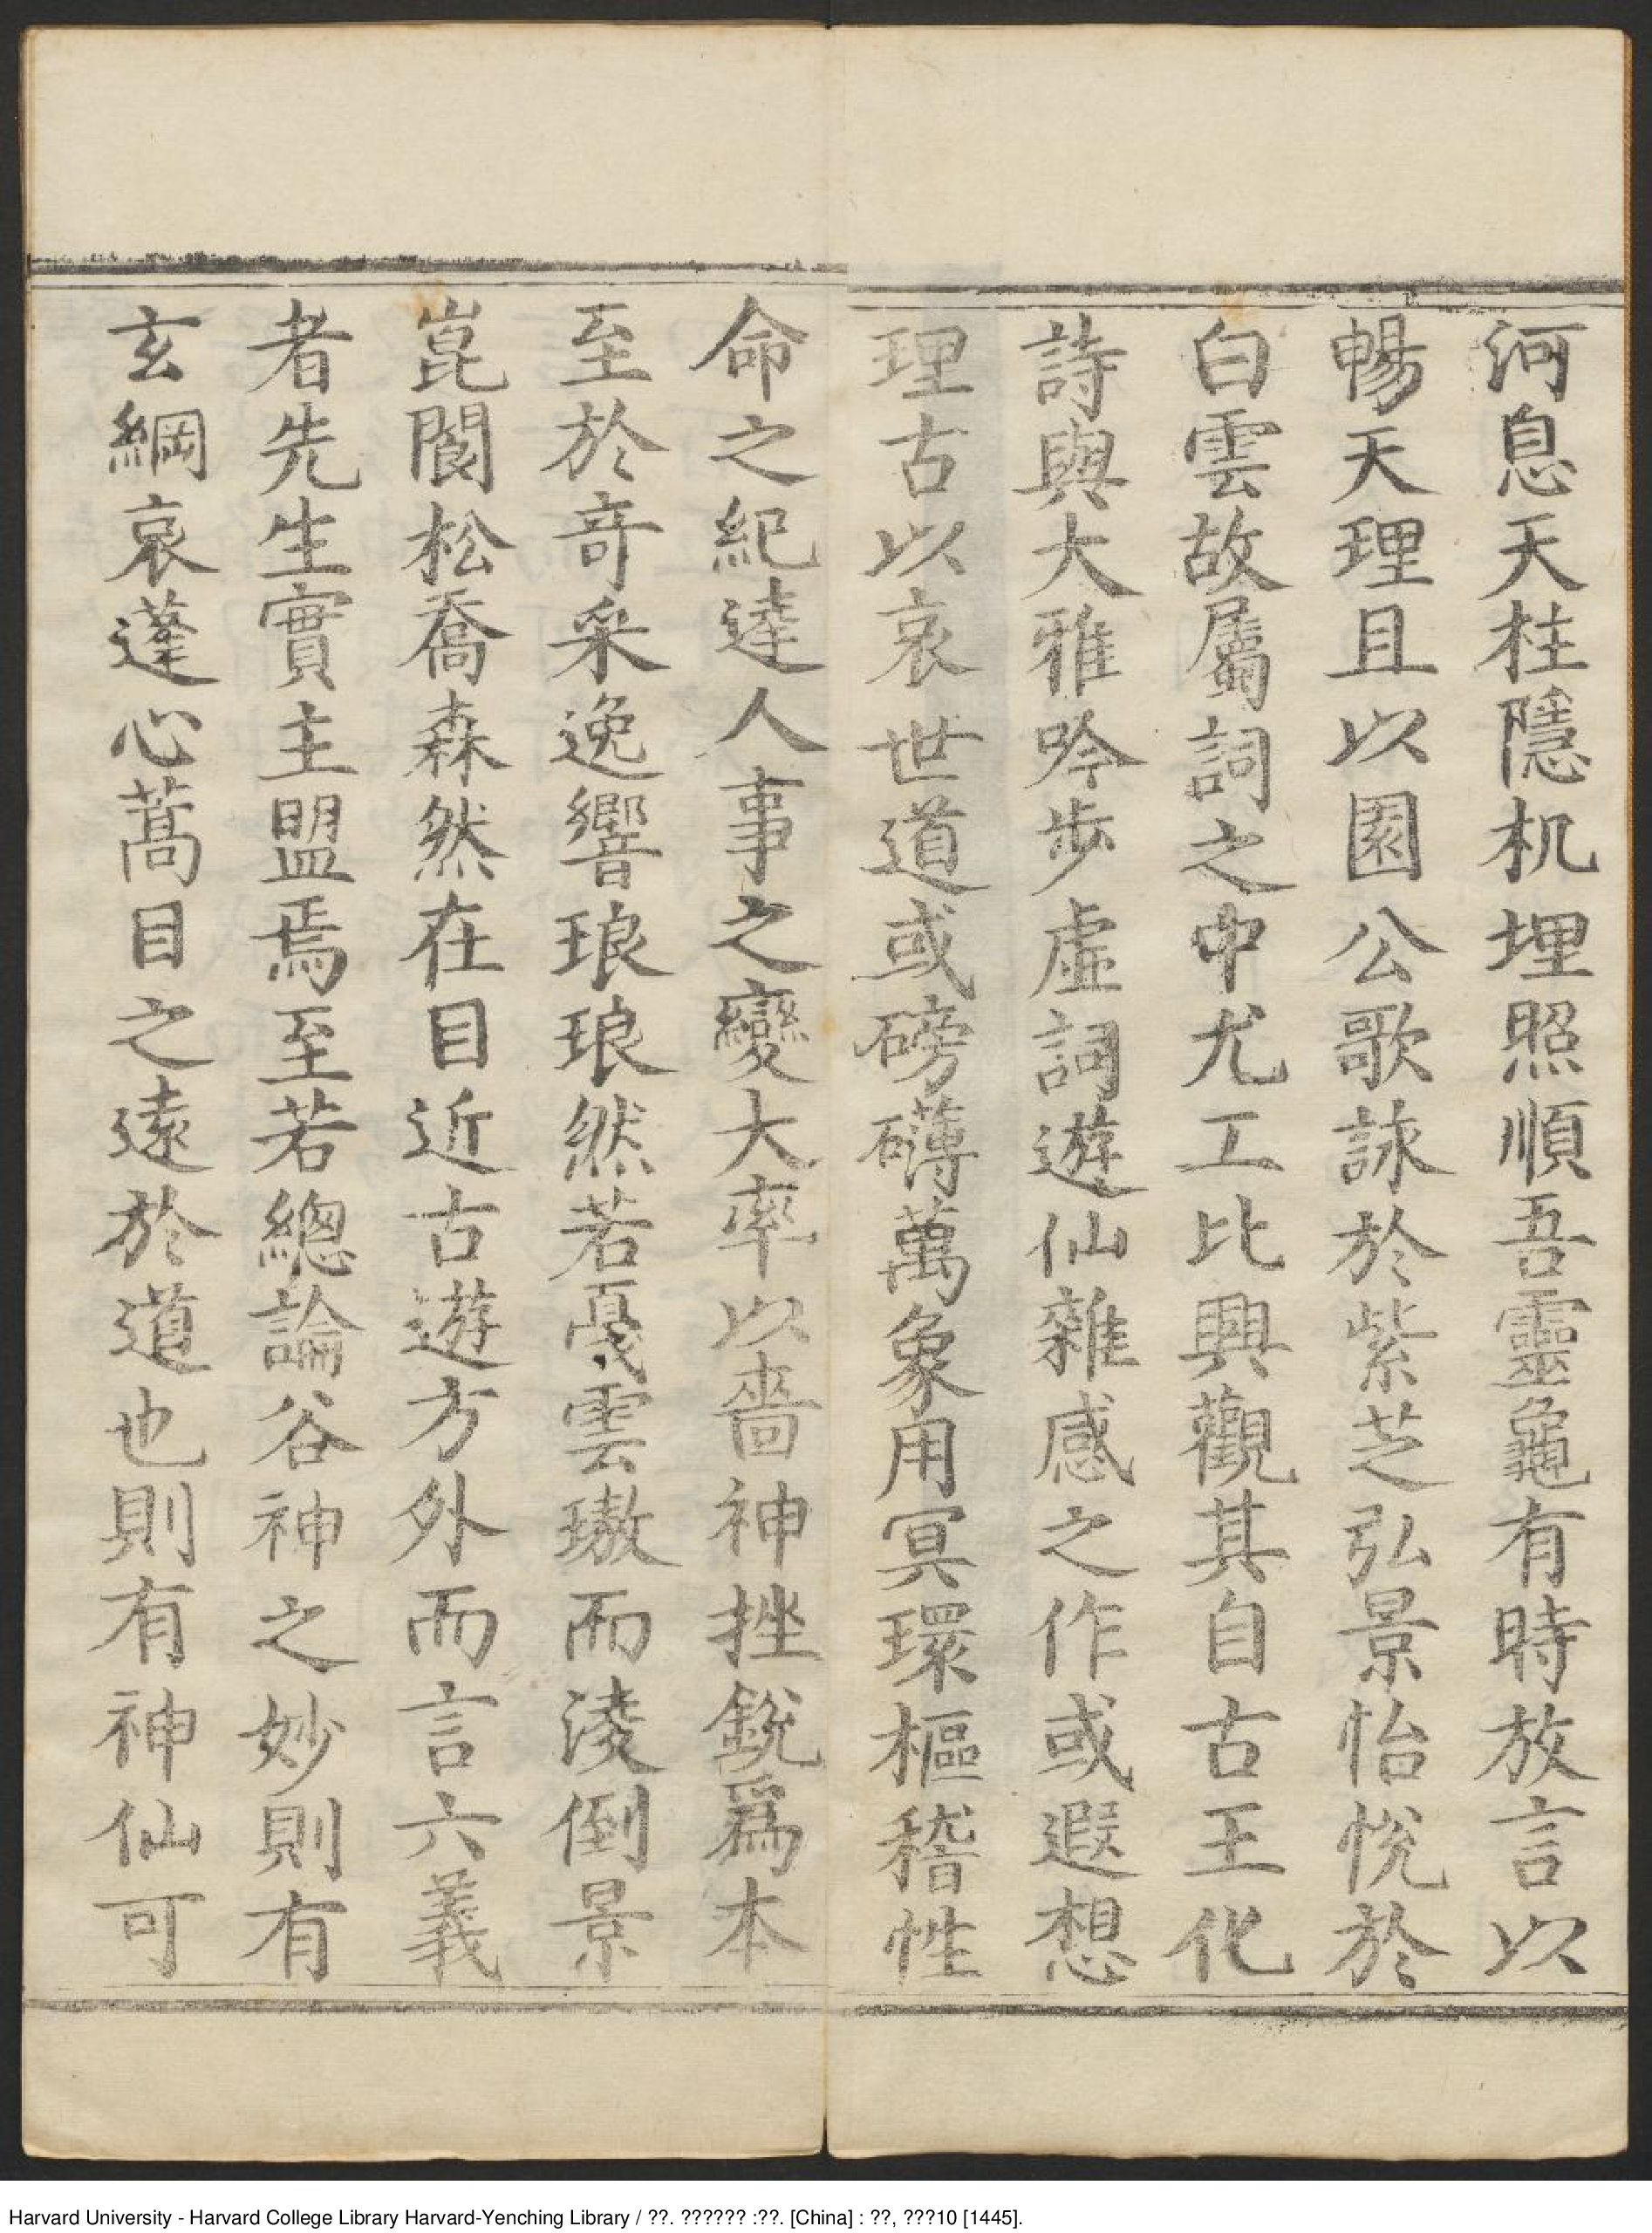 河息天柱隱机埋照順吾靈龜有時放言以
暢天理且以園公歌詠於紫芝弘景怡悅於
白雲故屬詞之中尤工比興觀其自古王化
詩與大雅吟步虛詞遊仙雜感之作或遐想
理古以哀世道或磅礴萬象用冥環樞稽性
命之紀達人事之變大率以嗇神挫銳爲本
至於奇采逸響琅琅然若戛雲璈而淩倒景
崑閬松喬森然在目近古遊方外而言六義
者先生實主盟焉至若總論谷神之妙則有
玄綱哀蓬心蒿目之遠於道也則有神仙可
Harvard University - Harvard College Library Harvard-Yenching Library / ??. ?????? :??. [China] : ??, ???10 [1445].